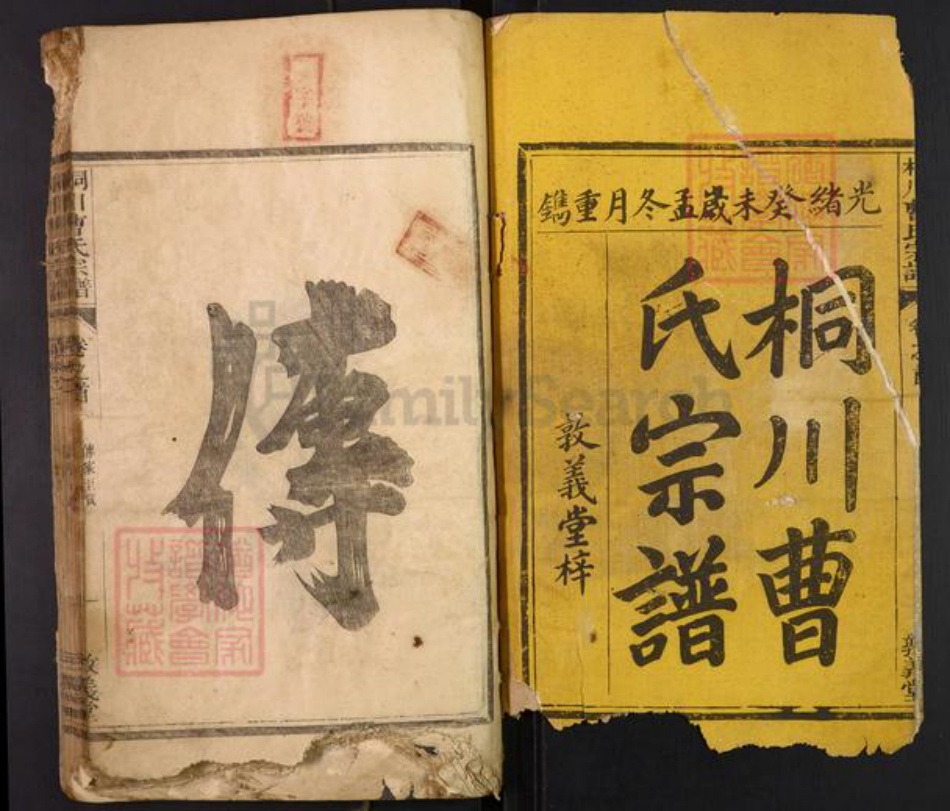 光緒癸未歲孟冬月重鐫
桐川曹
氏宗譜
敦義堂梓
傳
桐川曹氏宗譜
卷之首
敦義堂
FamilySearch